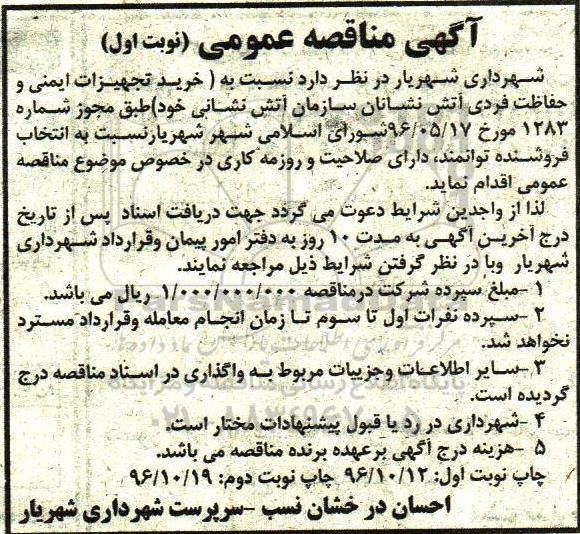 آگهی مناقصه عمومی (نوبت اول)
شهرداری شهریار در نظر دارد نسبت به ( خرید تجهیزات ایمنی و
حفاظت فردی آتش نشانان سازمان آتش نشانی خود)طبق مجوز شماره
۱۲۸۳ مورخ ۹۶/۰۵/۱۷شورای اسلامی شهر شهریارنسبت به انتخاب
فروشنده توانمند، دارای صلاحیت و روزمه کاری در خصوص موضوع مناقصه
عمومی اقدام نماید.
لذا از واجدین شرایط دعوت می گردد جهت دریافت اسناد پس از تاریخ
درج آخرین آگهی به مدت ۱۰ روز به دفتر امور پیمان وقرارداد شهرداری
شهریار وبا در نظر گرفتن شرایط ذیل مراجعه نمایند.
۱ -مبلغ سپرده شرکت درمناقصه ۱/۰۰۰/۰۰۰/۰۰۰ ریال می باشد.
۲ -سپرده نفرات اول تا سوم تا زمان انجام معامله وقرارداد مسترد
نخواهد شد.
۳ -سایر اطلاعات وجزییات مربوط به واگذاری در اسناد مناقصه درج
گردیده است.
۴ -شهرداری در رد یا قبول پیشنهادات مختار است.
۵ -هزینه درج آگهی برعهده برنده مناقصه می باشد.
چاپ نوبت اول: ۹۶/۱۰/۱۲ چاپ نوبت دوم: ۹۶/۱۰/۱۹
احسان در خشان نسب -سرپرست شهرداری شهریار
ParsNamadData